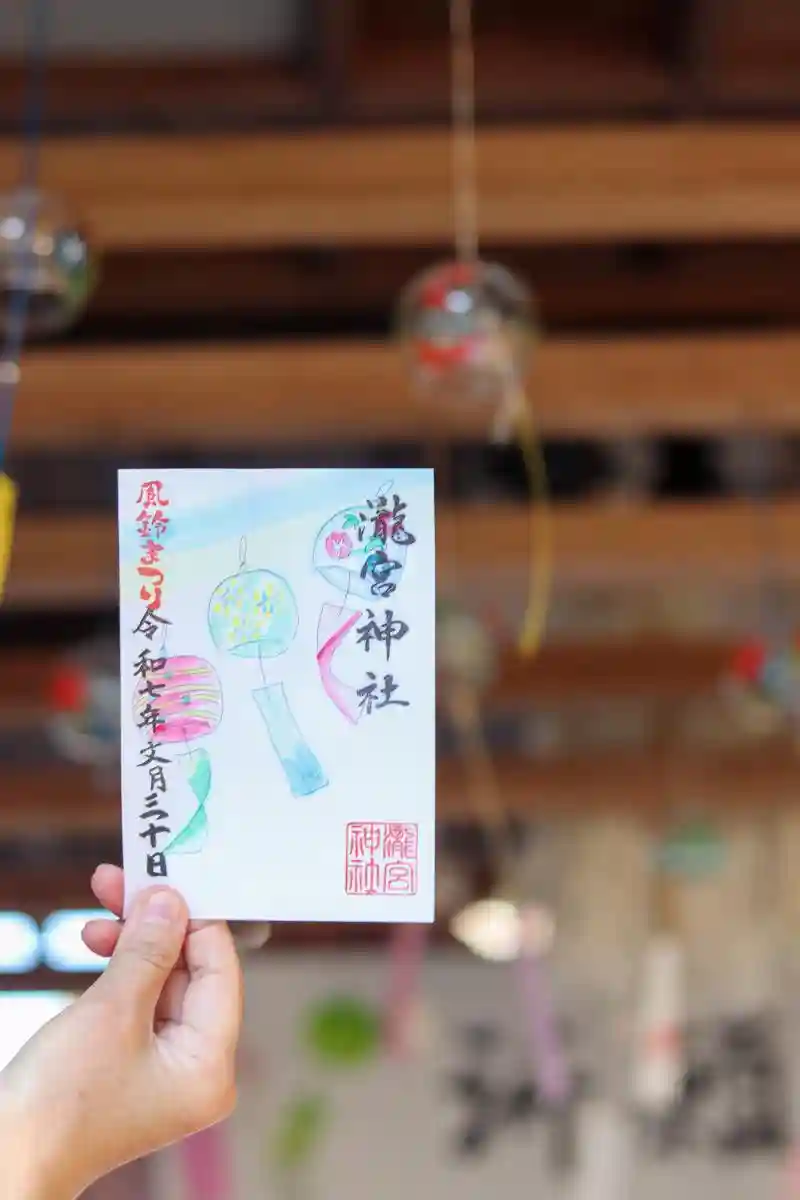 瀧宮神社
風鈴まつり
令和七年文月三十日
瀧宮
神社